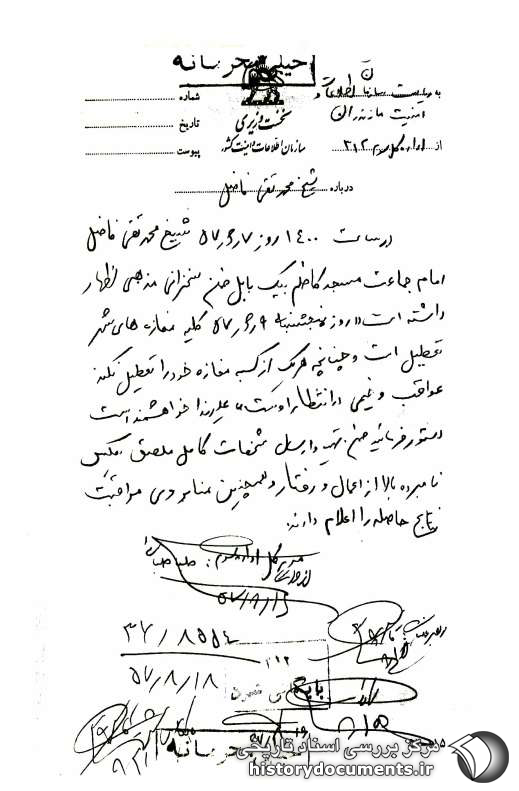 خیلی محرمانه
به ریاست سازمان اطلاعات و
امنیت مازندران
از اداره کل سوم ۳۱۲
نخست وزیری
سازمان اطلاعات و امنیت کشور
شماره
تاریخ
پیوست
درباره شیخ محمد تقی فاضل
در ساعت ۱۴۰۰ روز ۵۷٫۶٫۷ شیخ محمد تقی فاضل
امام جماعت مسجد کاظم بیک بابل ضمن سخنرانی مذهبی اظهار
داشته است (روز پنجشنبه ۵۷٫۶٫۹ کلیه مغازه های شهر
تعطیل است و چنانچه هر یک از کسبه مغازه خود را تعطیل نکند
عواقب وخیمی در انتظار اوست) علیهذا خواهشمند است
دستور فرمائید ضمن تهیه و ارسال مشخصات کامل ملصق بعکس
نامبرده بالا از اعمال و رفتار و همچنین منابر وی مراقبت و
نتایج حاصله را اعلام دارند.
مدیر کل اداره سوم
۳۱۲
۵۷/۸/۱۸
بایگانی شود
خیلی محرمانه
مرکز بررسی اسناد تاریخی
historydocuments.ir